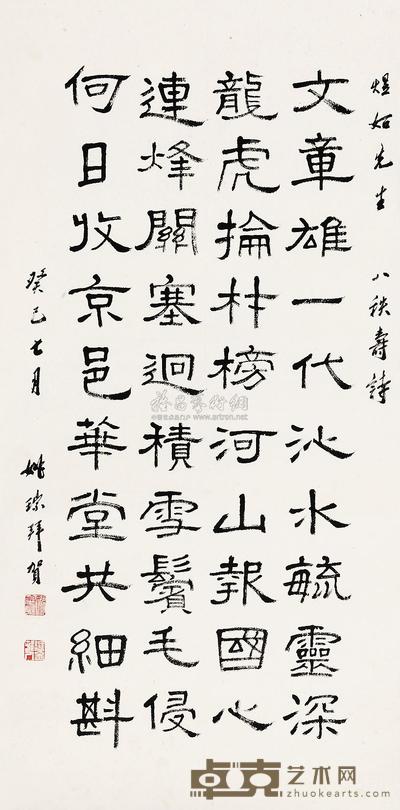 煜如先生 八秩壽詩
文章雄一代沁水毓靈深
龍虎掄材榜河山報國心
連烽關塞迥積雪鬢毛侵
何日收京邑華堂共細斟
癸巳七月 姚琮拜賀
雅昌藝術網
www.artron.net
卓克艺术网
zhuokearts.com